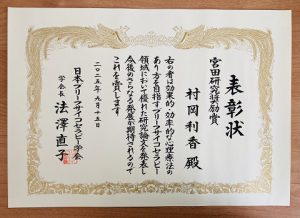 表彰状
宮田研究奨励賞
村岡利香 殿
右の者は効果的・効率的な心理療法の
あり方を目指すブリーフサイコセラピー
領域において優れた研究論文を発表し
今後のさらなる発展が期待されるので
これを賞します
二〇二五年九月十五日
日本ブリーフサイコセラピー学会
学会長 法澤直子